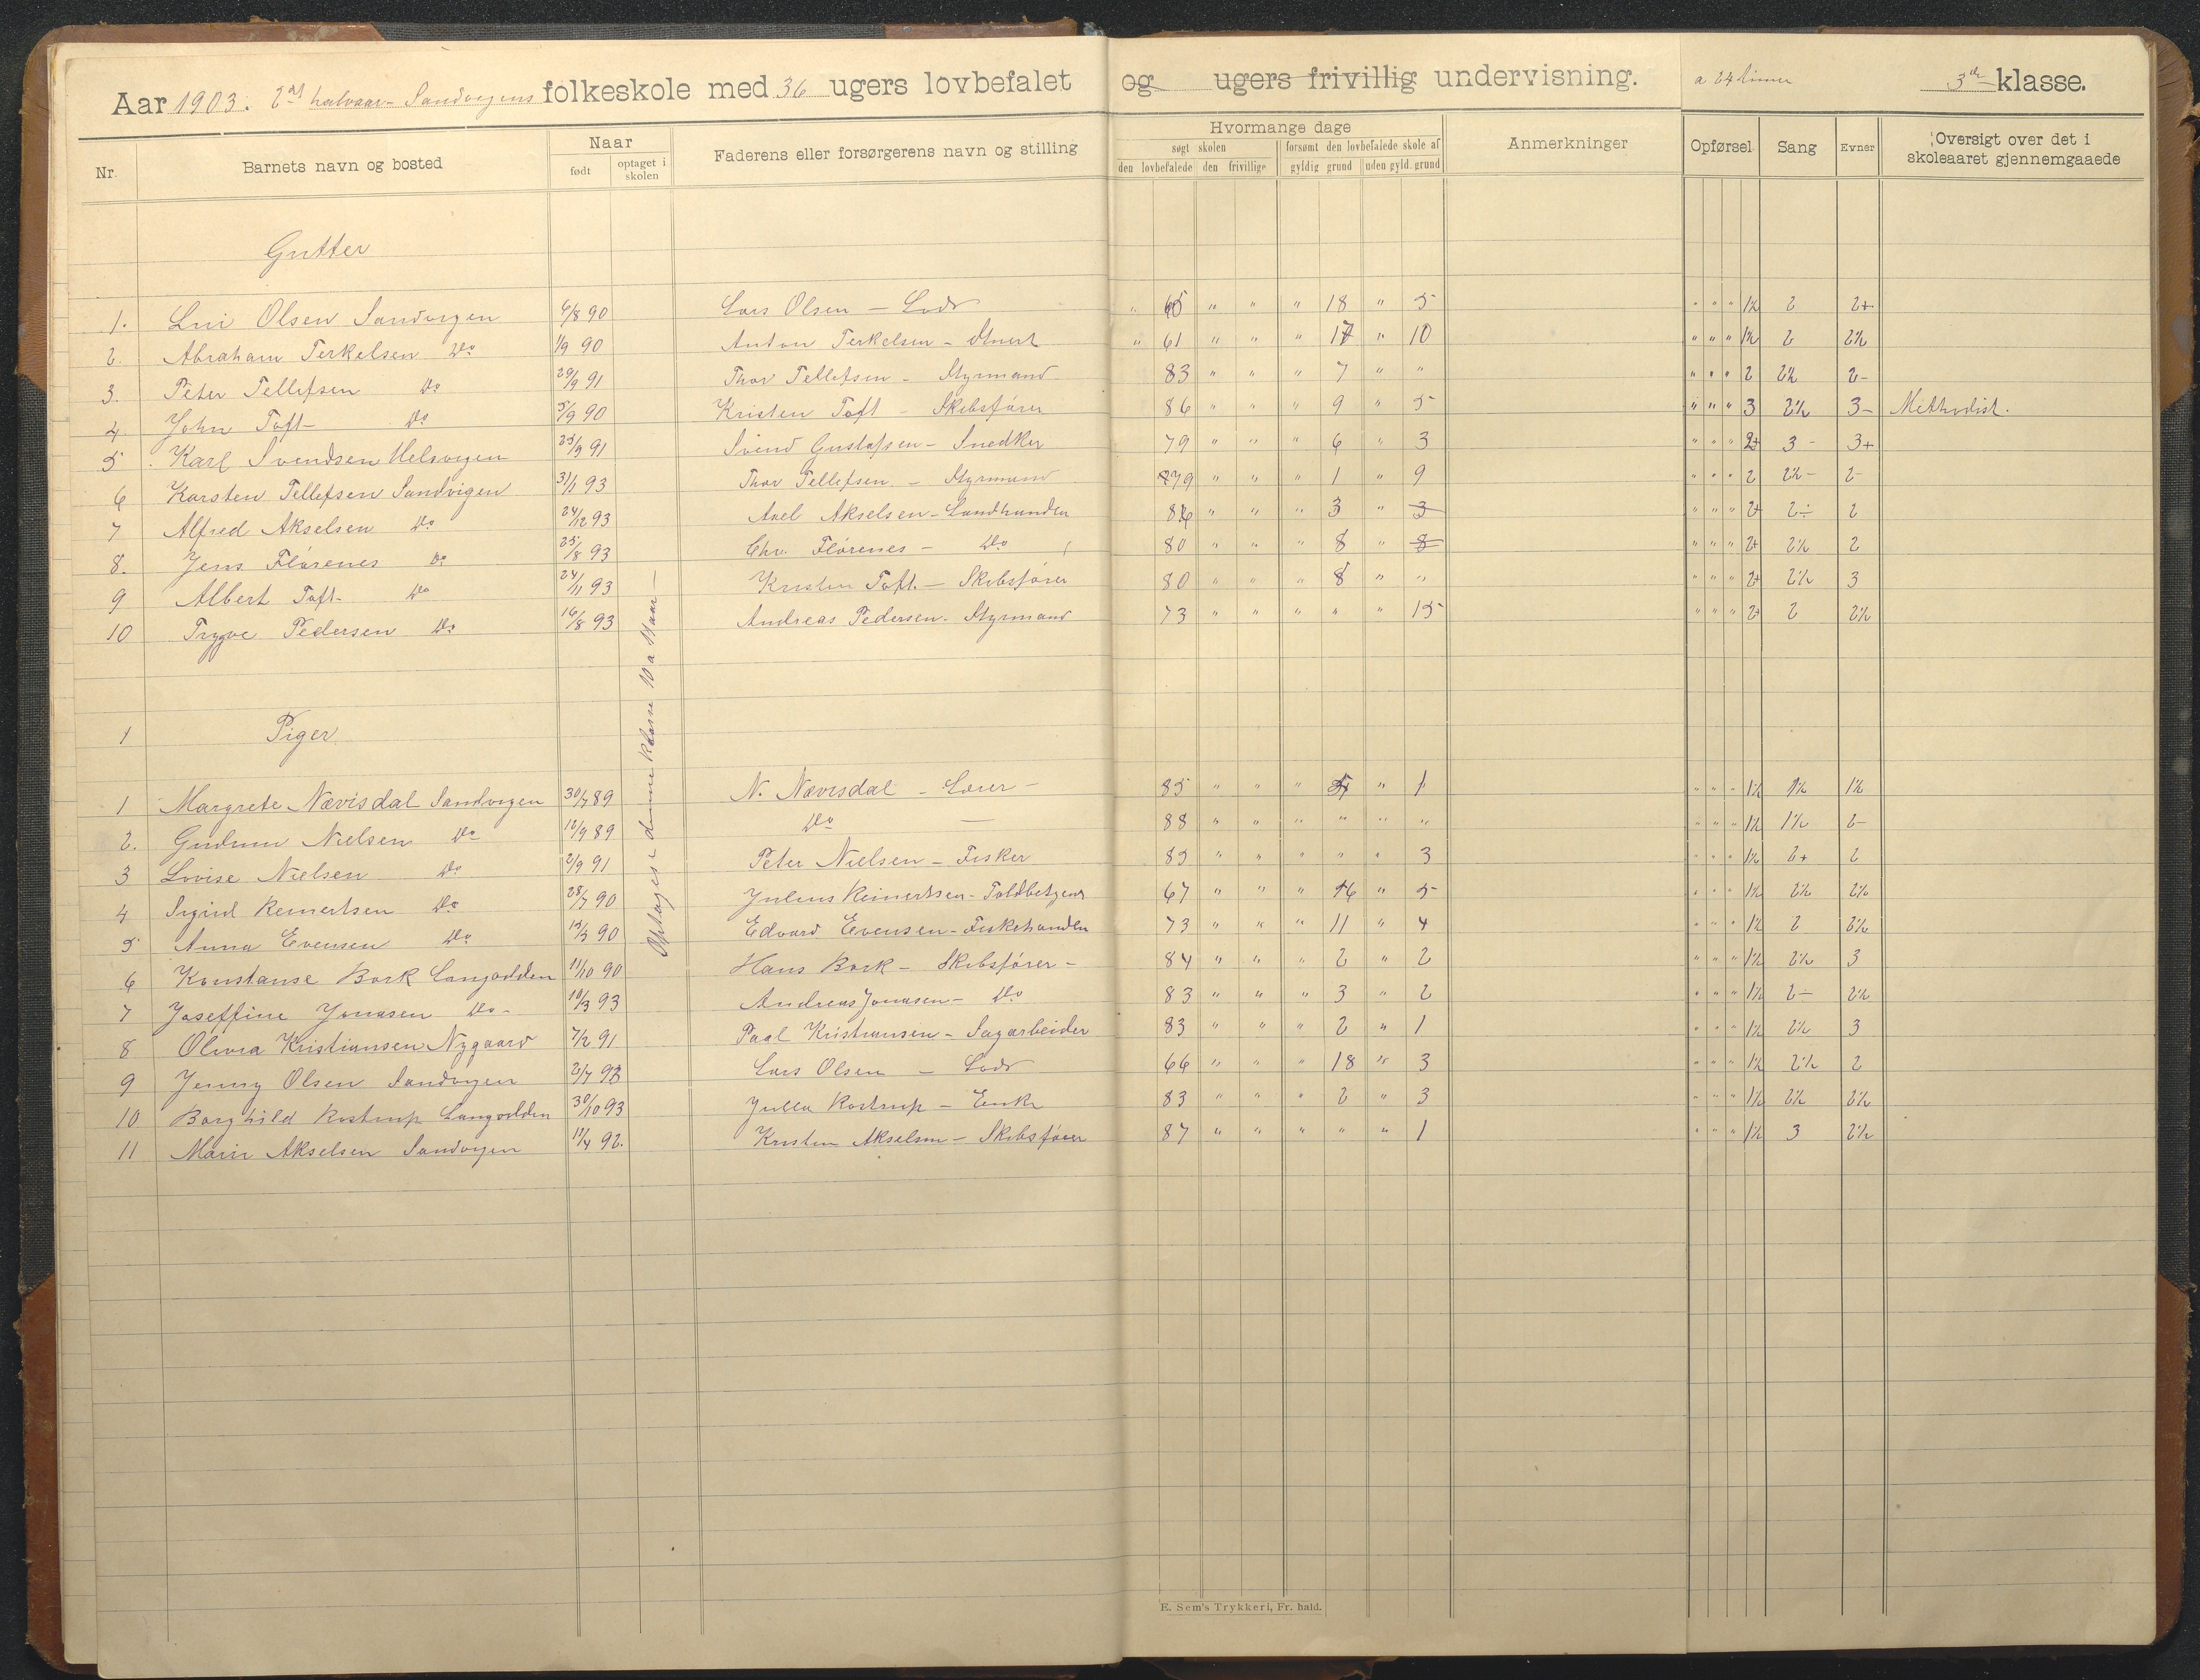 Aar 1903. 2det halvaar Sandvigens folkeskole med 36 ugers lovbefalet og ugers frivillig undervisning. a 24 timer 3die klasse.
Nr. Barnets navn og bosted Naar født optaget i skolen Faderens eller forsørgerens navn og stilling Hvormange dage søgt skolen den lovbefalede den frivillige forsømt den lovbefalede skole af gyldig grund uden gyld. grund Anmerkninger Opførsel Sang Evner Oversigt over det i skoleaaret gjennemgaaede
Gutter
1. Olsen Sandvigen 4/8 90 Lars Olsen – Lods " 65 " " " 18 " 5 " " " 1½ 2 2+
2. Abraham Terkelsen Do 1/9 90 Anton Terkelsen – " 61 " " " 17 " 10 " " " 1½ 2 2½
3. Peter Tellefsen Do 29/9 91 Thor Tellefsen – Styrmand 83 " " " 7 " " " " " 2 2½ 2-
4 John Toft – Do 5/9 90 Kristen Toft – Skibsfører 86 " " " 9 " 5 " " " 3 2½ 3- Methodist.
5 Karl Svendsen Helsvigen 25/9 91 Svend Gustafsen – Snedker 79 " " " 6 " 3 " " " 2+ 3- 3+
6 Karsten Tellefsen Sandvigen 31/1 93 Thor Tellefsen – Styrmand 79 " " " 1 " 9 " " " 2 2½- 2-
7 Alfred Akselsen Do 24/12 93 Axel Akselsen – Landhandler 86 " " " 3 " 3 " " " 2+ 2- 2
8. Jens Flørenes Do 25/8 93 Chr. Flørenes – Do 80 " " " 8 " 8 " " " 2+ 2½ 2
9 Albert Toft Do 24/11 93 Kristen Toft – Skibsfører 80 " " " 8 " " " " " 2+ 2½ 3
10 Trygve Pedersen Do 16/8 93 Andreas Pedersen. Styrmand 73 " " " " " 15 " " " 2+ 2 2½
Optages i denne klasse 10 a Maar –
1 Piger
1 Margrete Nævisdal Sandvigen 30/7 89 N. Nævisdal – Lærer – 85 " " " " 1 " " " 1½ 1½ 1½
2. Gudrun Nielsen Do 12/9 89 Do – 88 " " " " " " " " " 1½ 1½ 2-
3 Lovise Nielsen Do 2/9 91 Peter Nielsen – Fisker 85 " " " " " 3 " " " 1½ 2+ 2
4 Sigrid Reinertsen Do 28/7 90 Julius Reinertsen – Toldbetjent 67 " " " 16 " 5 " " " 1½ 2½ 2½
5 Anna Evensen Do 13/3 90 Edvard Evensen – Fiskehandler 73 " " " 11 " 4 " " " 1½ 2 2½
6 Konstanse Bork Langodden 11/10 90 Hans Bork – Skibsfører – 84 " " " 2 " 2 " " " 1½ 2½ 3
7 Joseffine Jonasen Do – 10/3 93 Andreas Jonasen – Do 83 " " " 3 " 2 " " " 1½ 2- 2½
8 Olivia Kristiansen Nygaard 7/2 91 Paal Kristiansen – Sagarbeider 83 " " " 2 " 1 " " " 1½ 2½ 3
9 Jenny Olsen Sandvigen 2/7 93 Lars Olsen – Lods 66 " " " 18 " 3 " " " 1½ 2½ 2
10 Borghild Rostrup Langodden 30/10 93 Julla Rostrup – Enke 83 " " " 2 " 3 " " " 1½ 2½ 2½
11 Marie Akselsen Sandvigen 11/4 92. Kristen Akselsen – Skibsfører 87 " " " " " 1 " " " 1½ 3 2½
E. Sem's Trykkeri, Fr. hald.